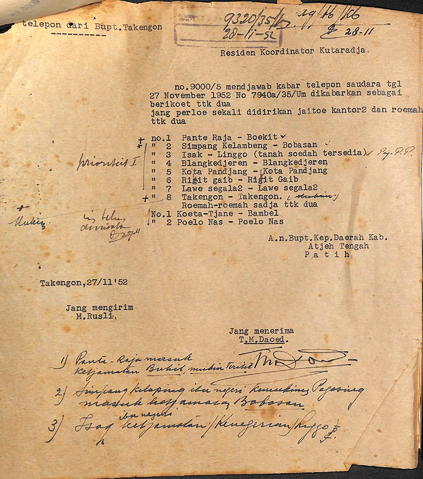 telepon dari Bupt.Takengon
9320/35/
28-11-52
28-11
Residen Koordinator Kutaradja.
no.9000/5 mendjawab kabar telepon saudara tgl
27 November 1952 No 7940a/35/Um dikabarkan sebagai
berikoet ttk dua
jang perloe sekali didirikan jaitoe kantor2 dan roemah
ttk dua
no.1 Pante Raja - Boekit
" 2 Simpang Kelambeng - Bobasan
" 3 Isak - Linggo (tanah soedah tersedia)
prioriteit I
" 4 Blangkedjeren - Blangkedjeren
" 5 Kota Pandjang - Kota Pandjang
" 6 Rigit gaib - Rigit Gaib
" 7 Lawe segala2 - Lawe segala2
" 8 Takengon - Takengon.
Roemah-roemah sadja ttk dua
No.1 Koeta-Tjane - Bambel
" 2 Poelo Nas - Poelo Nas
A.n.Bupt.Kep.Daerah Kab.
Atjeh Tengah
P a t i h.
Takengon,27/11'52
Jang mengirim
M.Rusli,
Jang menerima
T.M.Daoed.
1) Pante-Raja masuk
ketjamatan Bukit,
2) Simpang Kelaping ibu negeri Pegasing
masuk ketjamatan Bobasan
3) Isaq ibu negeri ketjamatan/Kenegerian/Linggo